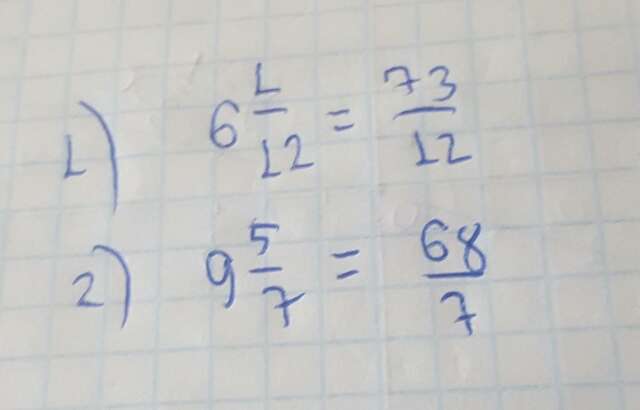 1) 6 1/12 = 73/12
2) 9 5/7 = 68/7